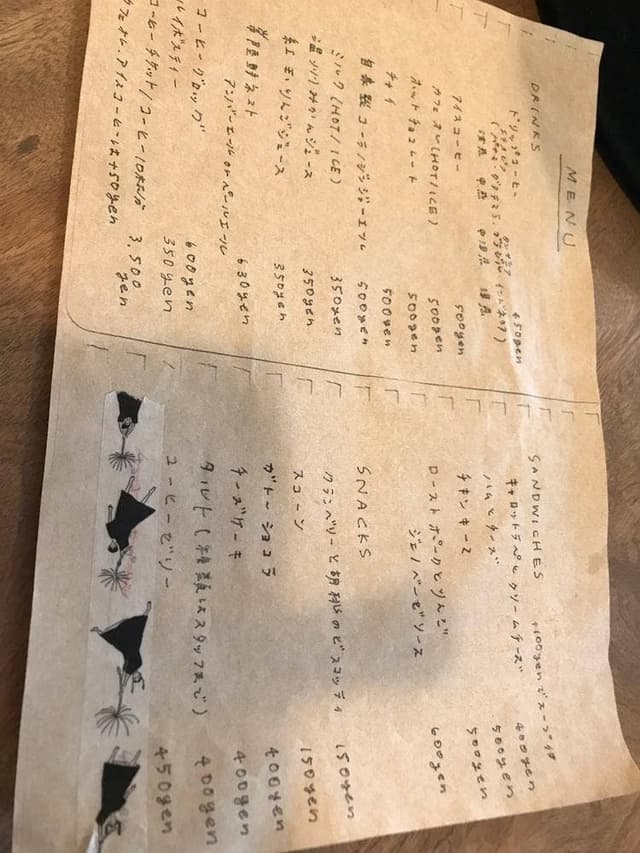 MENU
DRINKS
ドリップコーヒー 450yen
浅煎 中煎 中深煎 深煎
アイスコーヒー 500yen
カフェオレ(HOT/ICE) 500yen
ホットチョコレート 500yen
チャイ 500yen
自家製コーラ/ジンジャーエール 500yen
ミルク(HOT/ICE) 350yen
温州みかんジュース 350yen
紅玉りんごジュース 350yen
アンバーエール or ペールエール 630yen
コーヒーグロッグ 600yen
ルイボスティー 350yen
コーヒーチケット/コーヒー10杯分 3,500yen
カフェオレ、アイスコーヒーは+50yen
SANDWICHES +100yenでスープ付
キャロットラペとクリームチーズ 400yen
ハムとチーズ 500yen
チキンキーマ 500yen
ローストポークとりんご
ジェノベーゼソース 600yen
SNACKS
クランベリーと胡桃のビスコッティ 150yen
スコーン 150yen
ガトーショコラ 400yen
チーズケーキ 400yen
タルト(種類はスタッフまで) 400yen
コーヒーゼリー 450yen